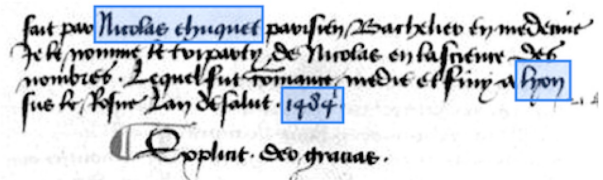 fait par Nicolas chuquet parisien Bachelier en medecine
Je le nomme le triparty de Nicolas en la science des
nombres. Lequel fut comance medie et finy a lyon
sus le Rosne Lan de salut. 1484.
Explicit. deo gracias.